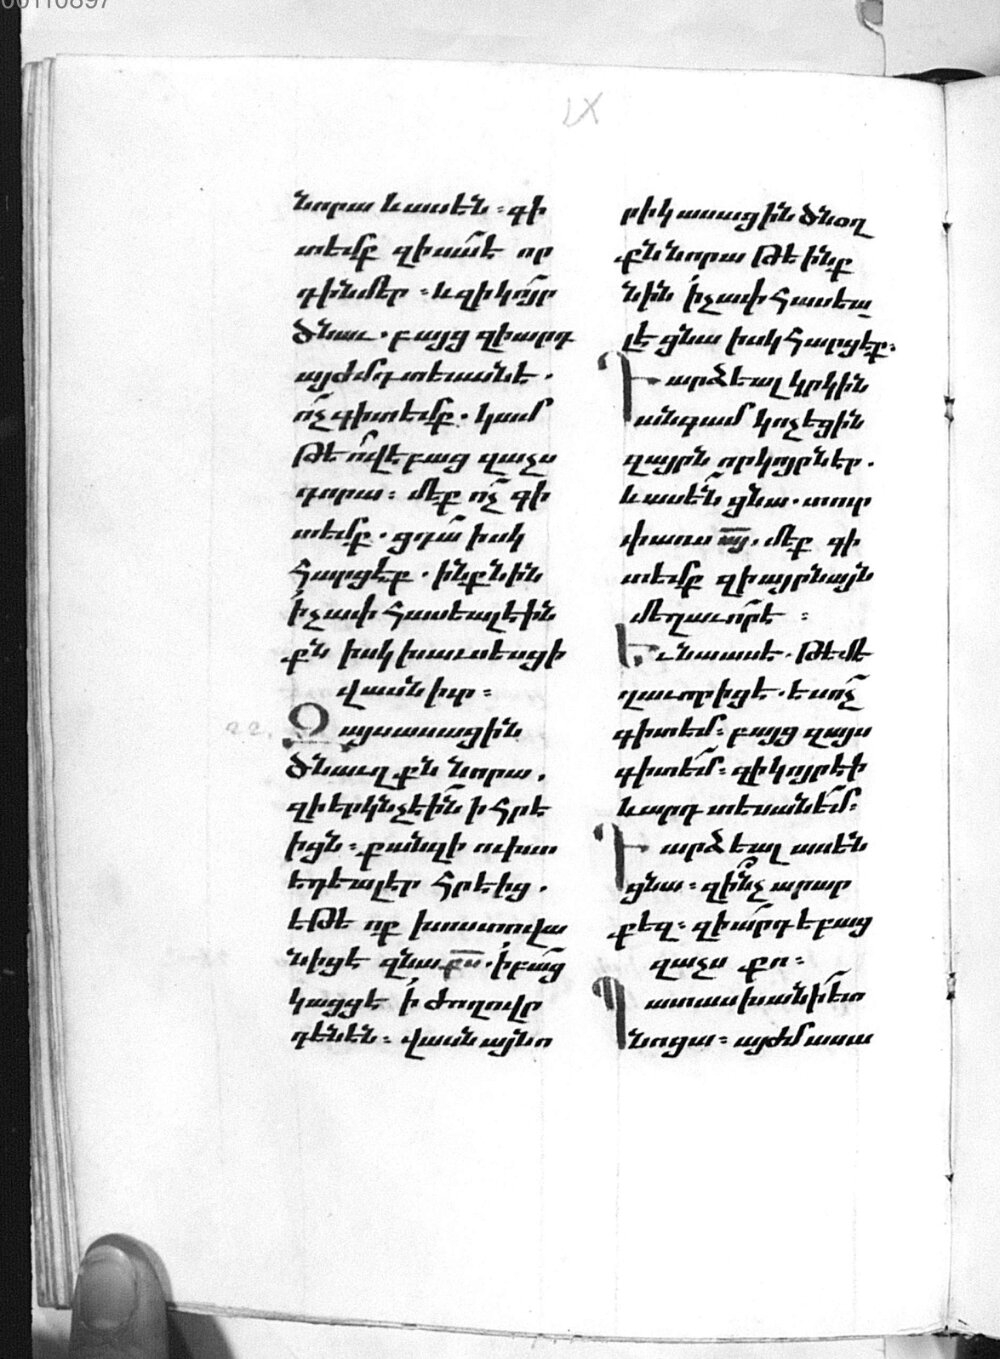 00110897
նորա և ասեն ։ գի
տեմք զի սա՛ է որ
դին մեր ։ և զի կո՛յր
ծնաւ . բայց զիարդ
այժմդ տեսանե .
ո՛չ գիտեմք . կամ
թե ո՛վ եբաց զաչս
դորա ։ մեք ո՛չ գի
տեմք . ց դա՛ իսկ
հարցէք . ինքնին
ի՛ չափ հասեալ է ին
քն իսկ խաւսեսցի
վասն իւր ։
Զայս ասացին
ծնաւղ քն նորա .
զի երկնչեի՛ն ի հրե
իցն ։ քանզի ուխտ
եդեալ էր հրեից .
եթե ոք խոստովա
նիցե զնա ք̅ս̅ . ի՛ բա՛ց
կացցե ի՛ ժողովր
դենեն ։ վասն այնո
րիկ ասացին ծնօղ
քն նորա թե ինք
նին ի՛ չափ հասեա
լ է ցնա իսկ հարցէք .
Դարձեալ կրկին
անգամ կոչեցին
զայրն որ կոյրն էր .
և ասե՛ն ցնա . տուր
փառս ա̅յ̅ . մեք գի
տեմք զի այրն այն
մեղաւո՛ր է ։
Եւ նա ասե . թե մե
ղաւոր իցե . ես ո՛չ
գիտեմ ։ բայց զայս
գիտե՛մ ։ զի կոյր եի
և արդ տեսանե՛մ ։
Դարձեալ ասեն
ցնա ։ զի՛նչ արար
քեզ ։ զիա՛րդ եբաց
զաչս քո ։
Պատասխանի ե՛տ
նոցա ։ այժմ ասա